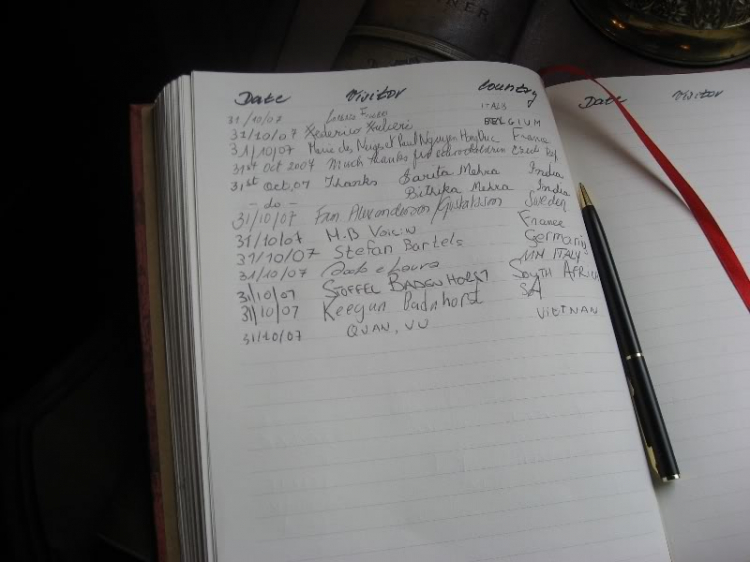 NER
Date Visitor Country
31/10/07 ITALY
31/10/07 Federico BELGIUM
31/10/07 Marie de Paul Nguyen France
31st Oct 2007 Much thanks Czech Rep
31st Oct, 07 Thanks Sarita Mehra India
- do - Bithika Mehra India
31/10/07 Sweden
31/10/07 M.B France
31/10/07 Stefan Bartels Germany
31/10/07 e Laura ITALY
31/10/07 STOFFEL BADENHORST SOUTH AFRICA
31/10/07 Keegan Badnhorst SA
31/10/07 QUAN, VU VIETNAN
Date Visitor